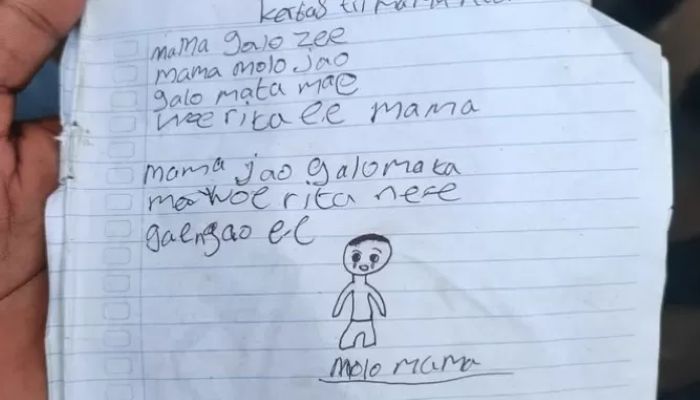 kertas tii mama
mama galo zee
mama molo jao
galo mata mae
woe rita ee mama
mama jao galo mata
mae woe rita nee
gae ngao ee
molo mama